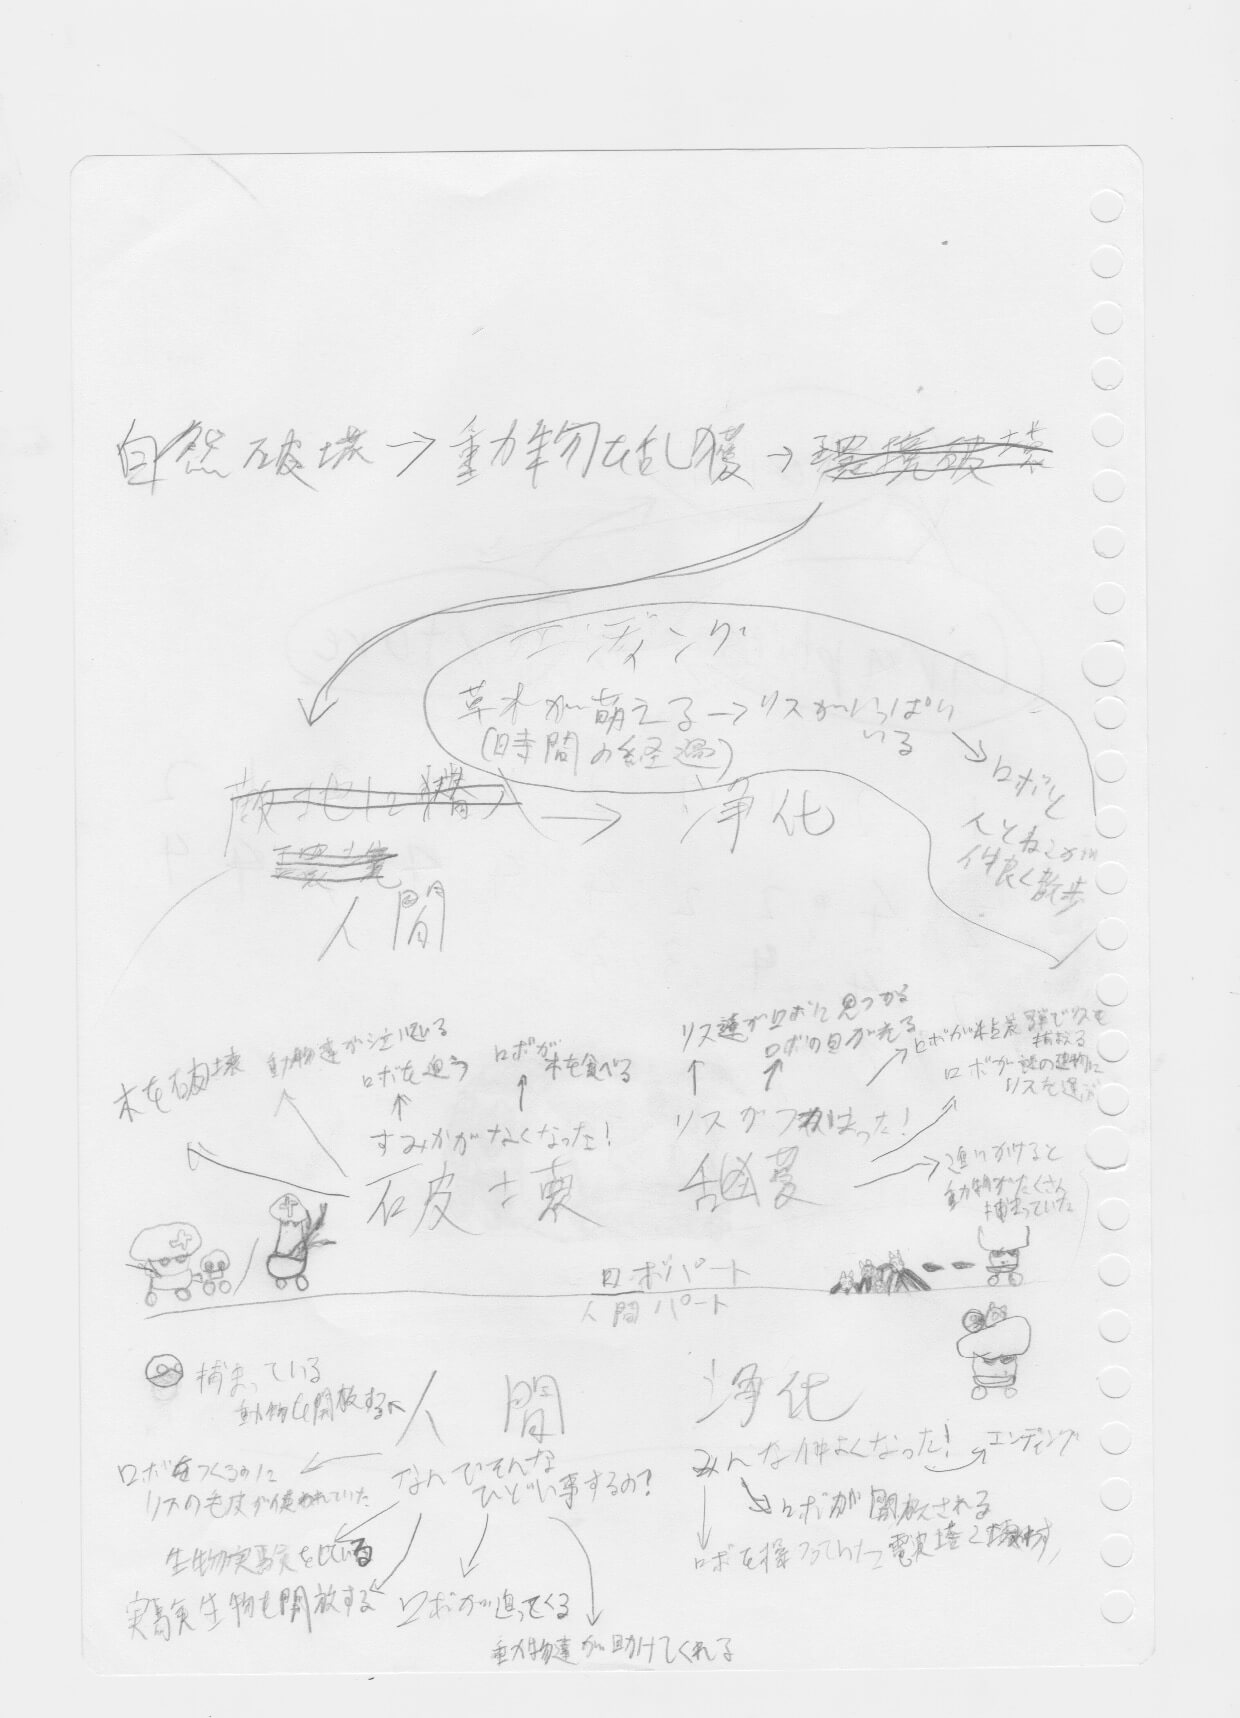 自然破壊→動物を乱獲→環境破壊
エンディング
草木が萌える→リスがいっぱい
いる
(時間の経過)
ロボと
人とねこが
仲良く散歩
敵地に潜入→浄化
環境
人間
木を破壊
動物達が泣いている
ロボを追う
ロボが
木を食べる
すみかがなくなった!
破壊
リス達がロボに見つかる
ロボの目が光る
リスがつかまった!
乱獲
ロボが粘着弾でリスを
捕える
ロボが謎の建物に
リスを運ぶ
追いかけると
動物がたくさん
捕まっていた
ロボパート
人間パート
捕まっている
動物を開放する
人間
なんでそんな
ひどい事するの?
ロボをつくるのに
リスの毛皮が使われていた
生物実験をしている
実験生物を開放する
ロボが追ってくる
動物達が助けてくれる
浄化
みんな仲よくなった!
エンディング
ロボが開放される
ロボを操っていた電波塔を壊す